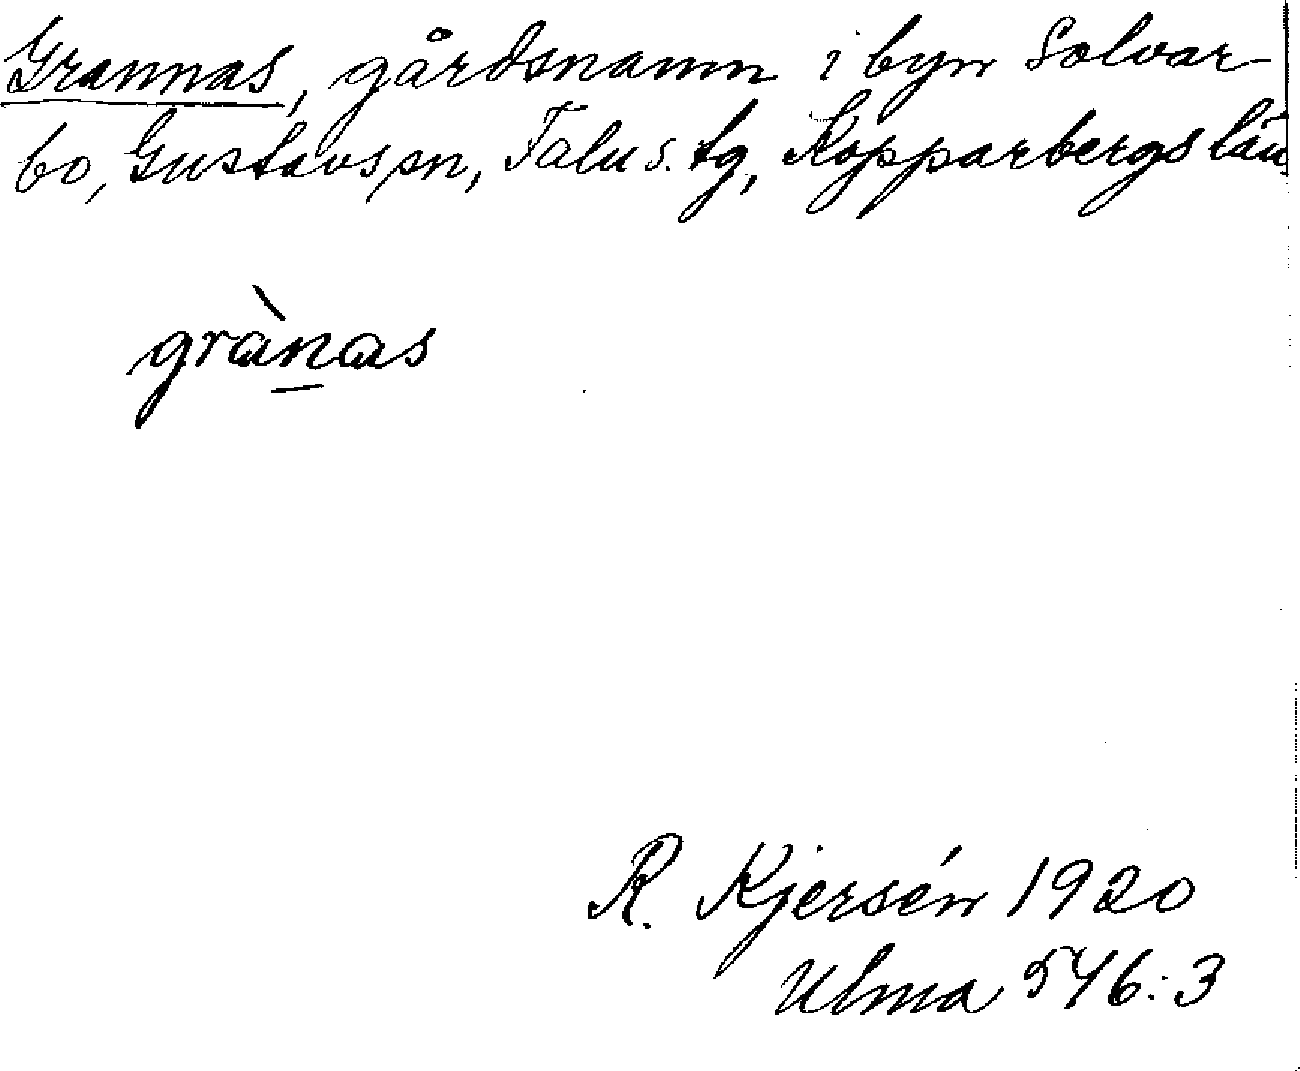 Grannas, gårdsnamn i byn Solvar-
bo, Gustavs sn, Falu s. tg, Kopparbergs län
grànas
R. Kjersén 1920
Ulma 546:3